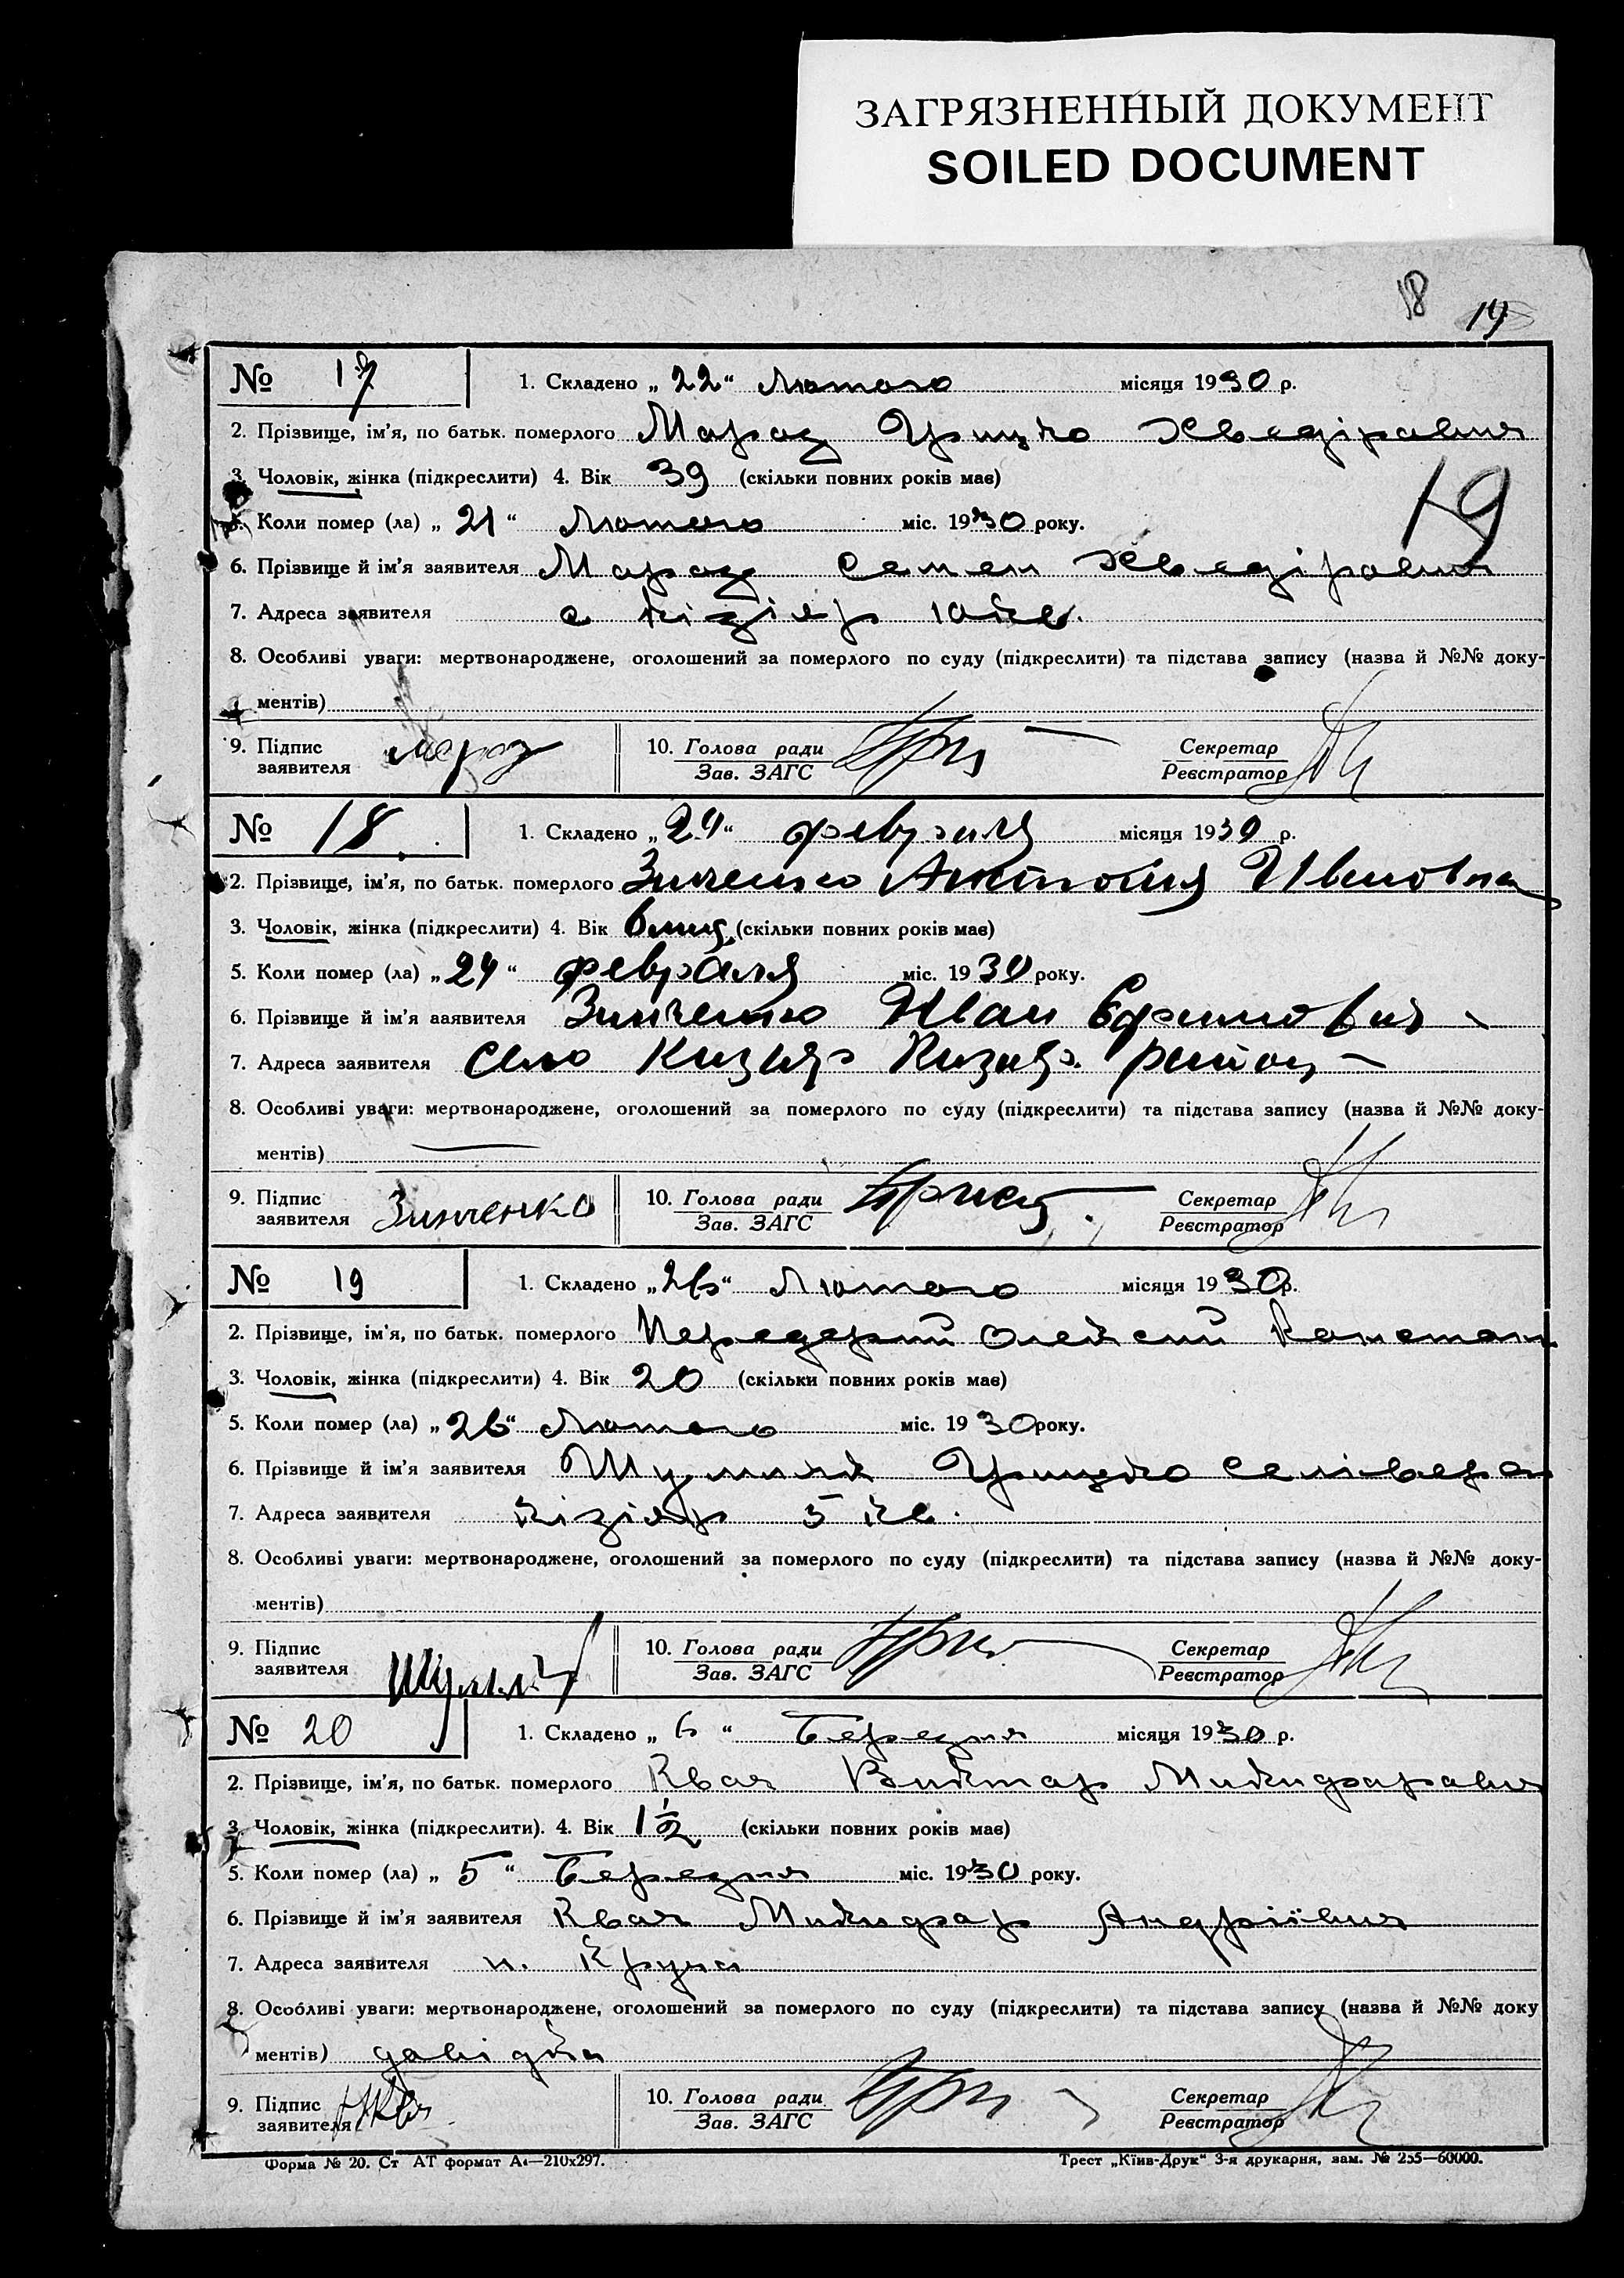 ЗАГРЯЗНЕННЫЙ ДОКУМЕНТ
SOILED DOCUMENT
18 19
№ 17 1. Складено „ 22 “ Лютого місяця 1930 р.
2. Прізвище, ім'я, по батьк. померлого Мороз Грицько Хведірович
3. Чоловік, жінка (підкреслити) 4. Вік 39 (скільки повних років має)
19
5. Коли помер (ла) „ 21 “ Лютого міс. 1930 року.
6. Прізвище й ім'я заявителя Мороз Семен Хведірович
7. Адреса заявителя с Кізіяр 10 кв.
8. Особливі уваги: мертвонароджене, оголошений за померлого по суду (підкреслити) та підстава запису (назва й №№ доку-
ментів)
9. Підпис заявителя Мороз 10. Голова ради Зав. ЗАГС Секретар Реєстратор
№ 18. 1. Складено „ 24 “ февраля місяця 1930 р.
2. Прізвище, ім'я, по батьк. померлого Зинченко Ивановна
3. Чоловік, жінка (підкреслити) 4. Вік (скільки повних років має)
5. Коли помер (ла) „ 24 “ февраля міс. 1930 року.
6. Прізвище й ім'я заявителя Зинченко Иван Ефимович
7. Адреса заявителя Село Кизияр Кизияр. район
8. Особливі уваги: мертвонароджене, оголошений за померлого по суду (підкреслити) та підстава запису (назва й №№ доку-
ментів)
9. Підпис заявителя Зинченко 10. Голова ради Зав. ЗАГС Секретар Реєстратор
№ 19 1. Складено „ 26 “ Лютого місяця 1930 р.
2. Прізвище, ім'я, по батьк. померлого Передерий Олексий
3. Чоловік, жінка (підкреслити) 4. Вік 20 (скільки повних років має)
5. Коли помер (ла) „ 26 “ Лютого міс. 1930 року.
6. Прізвище й ім'я заявителя Шумили Грицько Селівер
7. Адреса заявителя Кізіяр 5 кв.
8. Особливі уваги: мертвонароджене, оголошений за померлого по суду (підкреслити) та підстава запису (назва й №№ доку-
ментів)
9. Підпис заявителя 10. Голова ради Зав. ЗАГС Секретар Реєстратор
№ 20 1. Складено „ 6 “ Березня місяця 1930 р.
2. Прізвище, ім'я, по батьк. померлого Квач Виктор Микифорович
3. Чоловік, жінка (підкреслити). 4. Вік 1 1/2 (скільки повних років має)
5. Коли помер (ла) „ 5 “ Березня міс. 1930 року.
6. Прізвище й ім'я заявителя Квач Микифор Андрійович
7. Адреса заявителя
8. Особливі уваги: мертвонароджене, оголошений за померлого по суду (підкреслити) та підстава запису (назва й №№ доку
ментів)
9. Підпис заявителя 10. Голова ради Зав. ЗАГС Секретар Реєстратор
Форма № 20. Ст АТ формат А4—210х297. Трест „Київ-Друк“ 3-я друкарня, зам. № 255—60000.